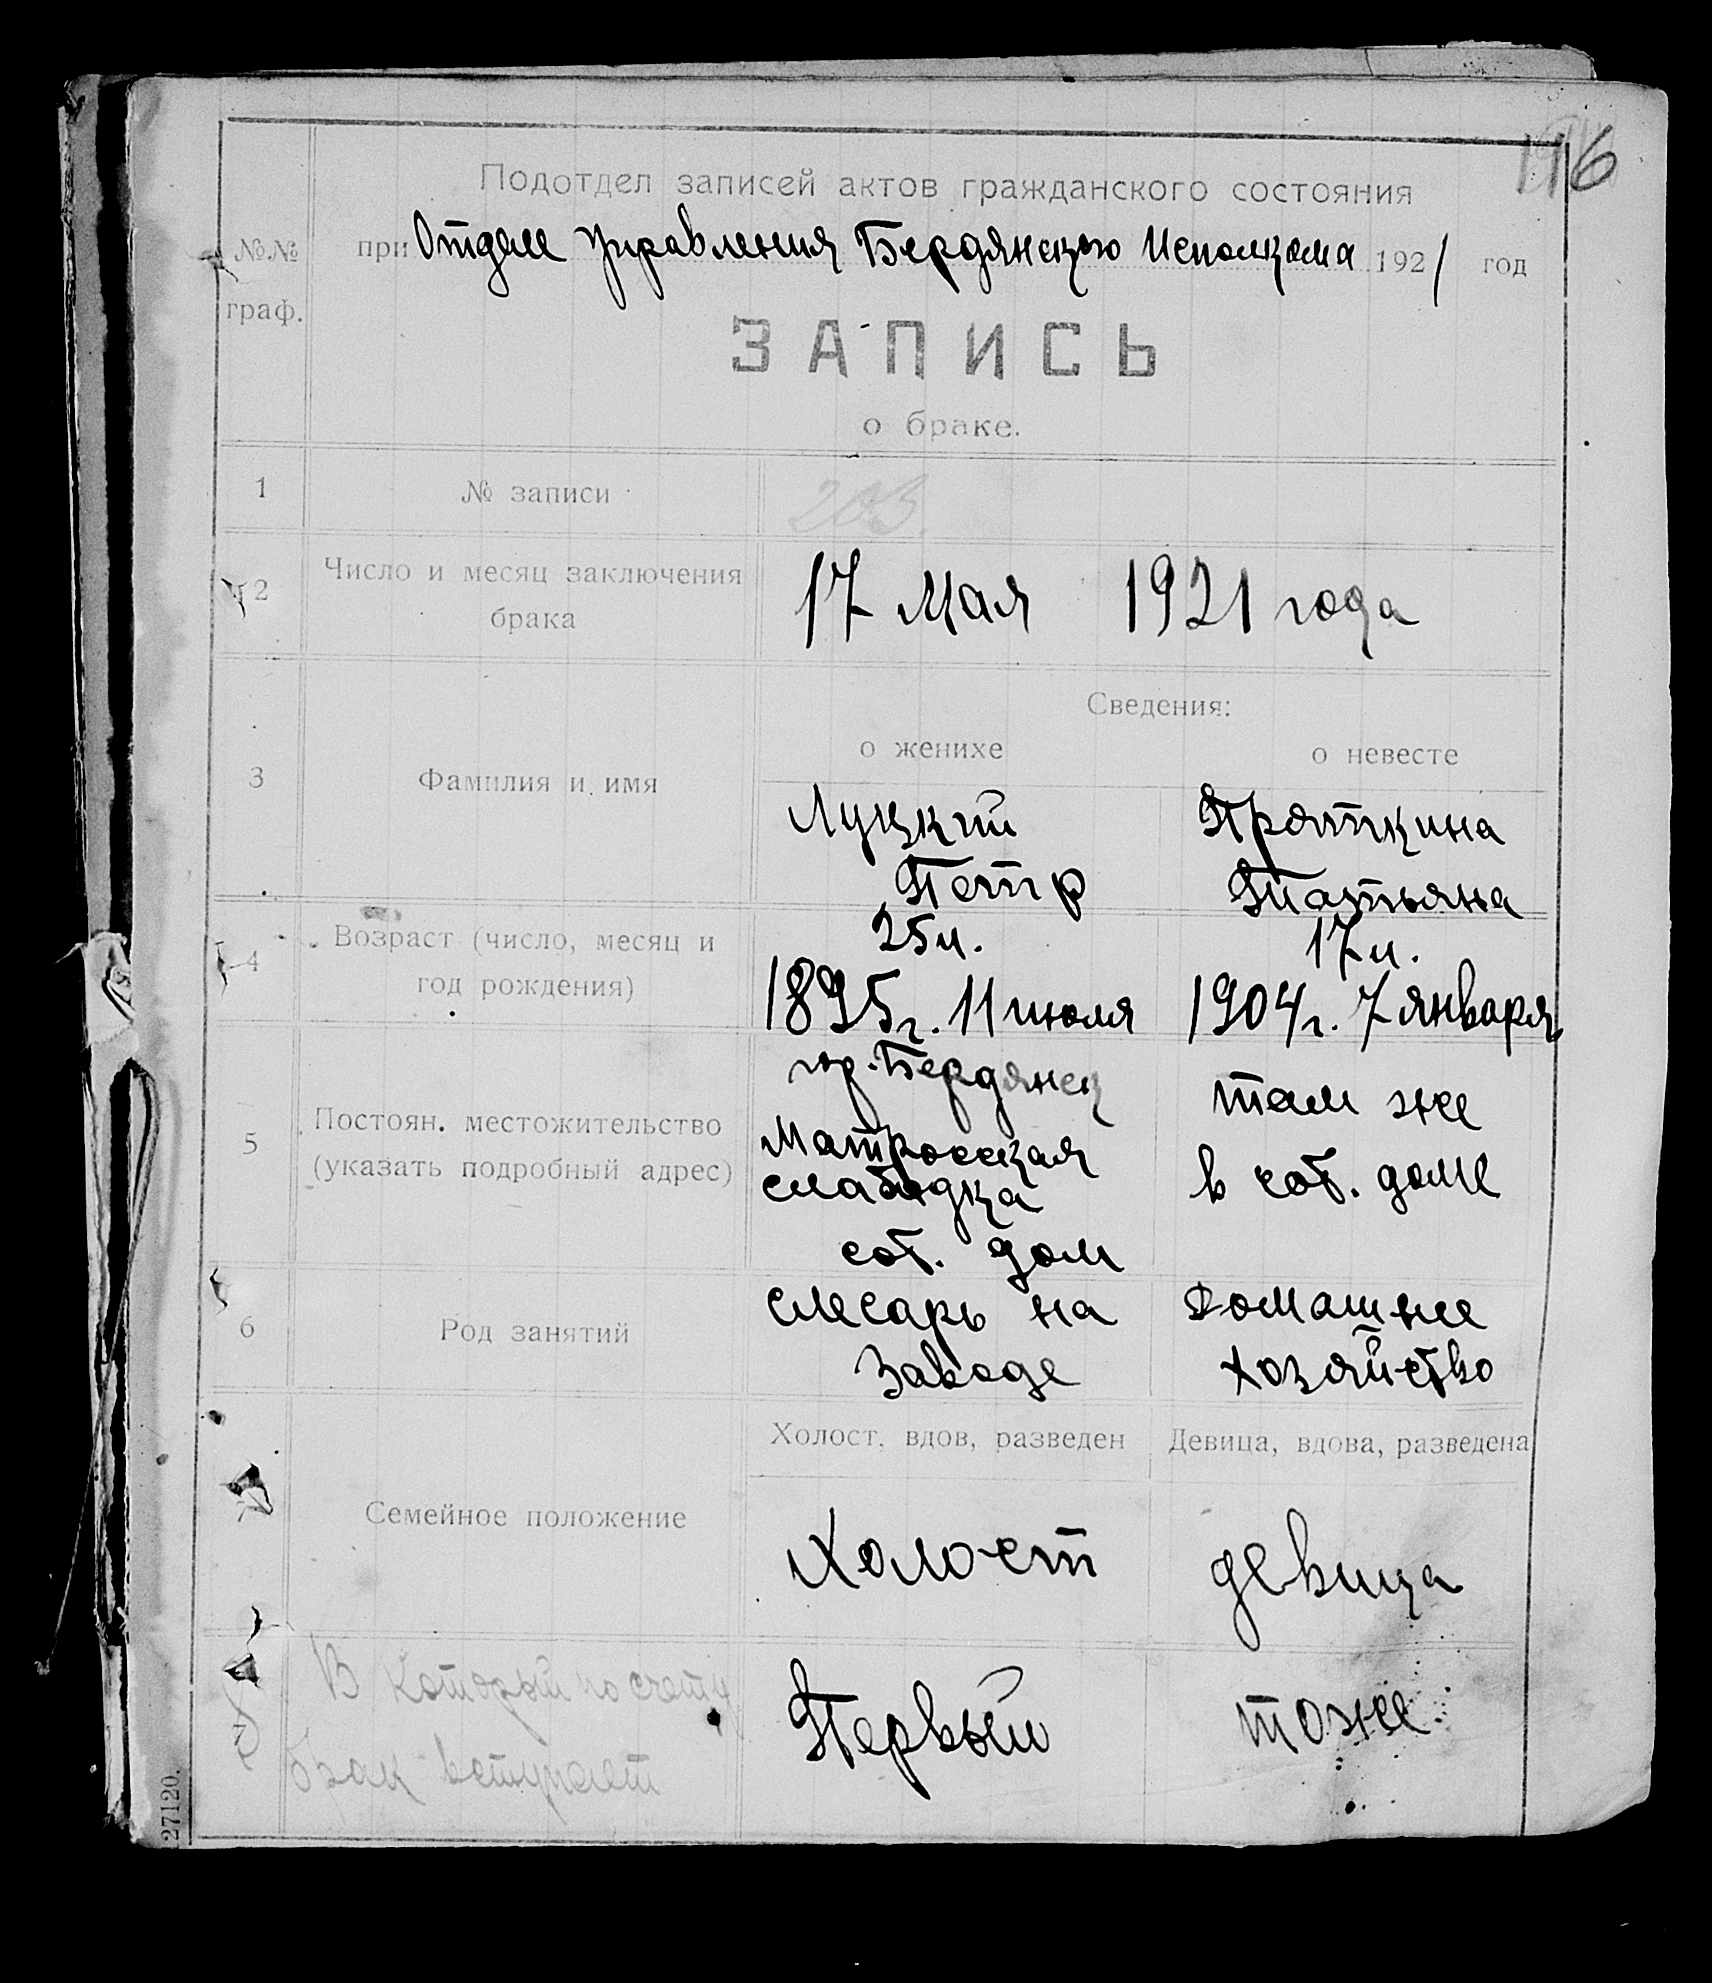 196
Подотдел записей актов гражданского состояния
при Отделе Управления Бердянского Исполкома 1921 год
№№
граф.
ЗАПИСЬ
о браке.
1 № записи 203.
2 Число и месяц заключения
брака
17 мая 1921 года
Сведения:
о женихе о невесте
3 Фамилия и имя
Луцкий Пряткина
Петр Татьяна
4 Возраст (число, месяц и
год рождения)
25 л. 17 л.
1895 г. 11 июля 1904 г. 7 января
5 Постоян. местожительство
(указать подробный адрес)
гор. Бердянск там же
Матросская в соб. доме
слабодка
соб. дом
6 Род занятий
слесарь на Домашнее
заводе хозяйство
Холост, вдов, разведен Девица, вдова, разведена
7 Семейное положение
Холост девица
В который по счету
брак вступает
Первый тоже
27120.